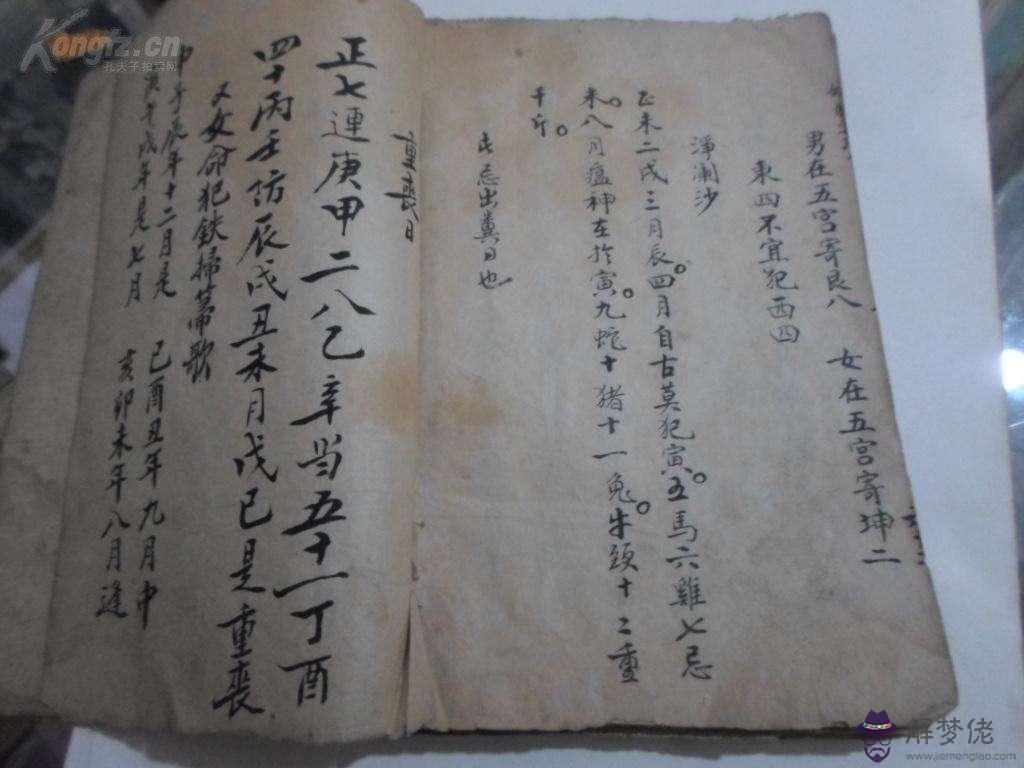 男在五宫寄艮八 女在五宫寄坤二
東四不宜犯西四
淨瀾沙
正未二戌三月辰。四月自古莫犯寅。五馬六雞七忌
未。八月瘟神在於寅。九蛇十猪十一兔。牛頭十二重
千斤。
此忌出糞日也
重喪日
正七連庚甲二八乙辛当五十一丁酉
四十丙壬防辰戌丑未月戊己是重喪
又女命犯鉄掃箒歌
申子辰年十二月是 巳酉丑年九月中
寅午戌年是七月 亥卯未年八月逢
Kongfz.cn
孔夫子拍卖网
解梦佬
www.jiemenglao.com